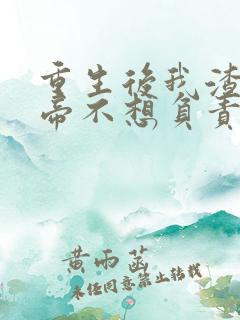 重生後我渣
帝不想負責
黄雨菡
未经同意禁止转载